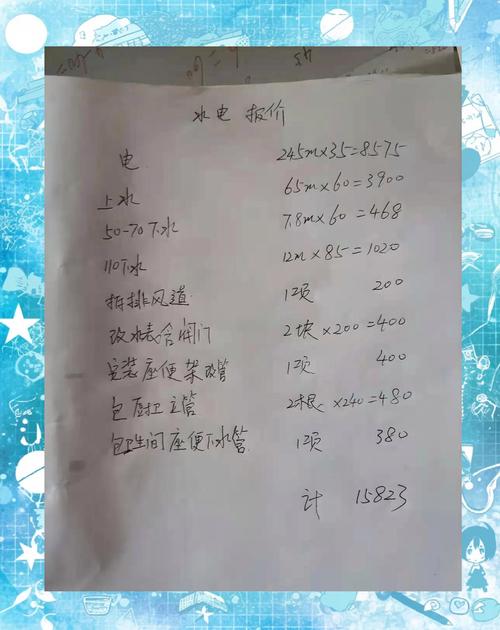 水电 报价
电 245m×35=8575
上水 65m×60=3900
50-70下水 7.8m×60=468
110下水 12m×85=1020
拆排风道 1项 200
改水表含闸门 2块×200=400
安装座便架改管 1项 400
包厨卫立管 2根×240=480
包卫生间座便下水管 1项 380
计 15823